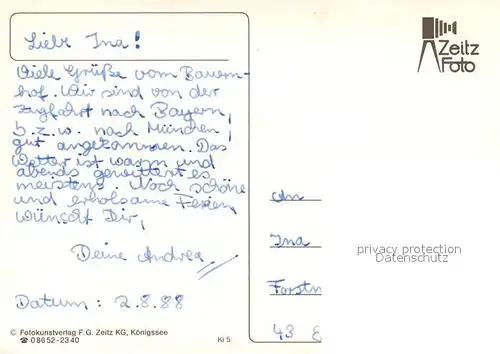 Liebe Ina!
Viele Grüße vom Bauern-
hof. Wir sind von der
Zugfahrt nach Bayern,
b.z.w. nach München,
gut angekommen. Das
Wetter ist warm und
abends gewittert es
meistens. Noch schöne
und erholsame Ferien
wünscht Dir,
Deine Andrea
Datum: 2.8.88
© Fotokunstverlag F.G. Zeitz KG, Königssee
☎ 08652-2340
Ki 5
Zeitz
Foto
An
Ina
privacy protection
Datenschutz
43